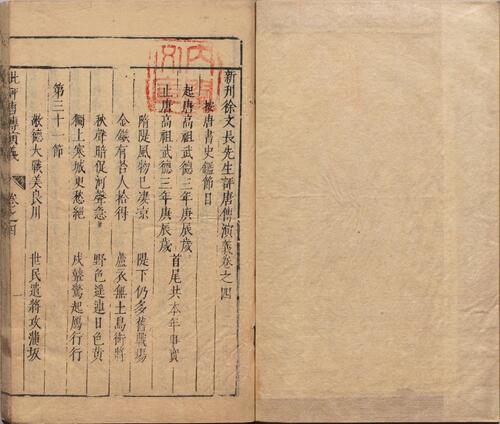 新刊徐文長先生評唐傳演義卷之四
按唐書史鑑節目
起唐高祖武德三年庚辰歲
止唐高祖武德三年庚辰歲 首尾共本年事實
隋隄風物已凄凉 隄下仍多舊戰塲
金鏃有苔人拾得 蘆衣無土鳥銜將
秋聲暗促河聲急 野色遥連日色黄
獨上寒城更愁絕 戍鼙驚起鴈行行
第三十一節
敬德大戰美良川 世民遣將攻蒲坂
批評唐傳演義 卷之四